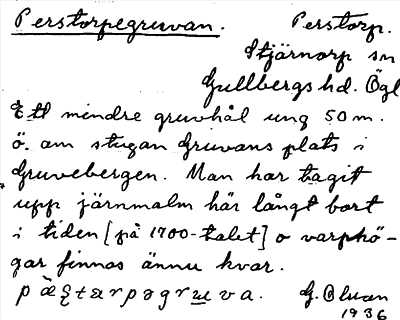 Perstorpegruvan. Perstorp.
Stjärnorp sn
Gullbergs hd. Ögl
Ett mindre gruvhål ung 50 m.
ö. om stugan Gruvans plats i
Gruvebergen. Man har tagit
upp järnmalm här långt bort
i tiden [på 1700-talet] o varphö-
gar finnas ännu kvar.
G. Olsson
1936